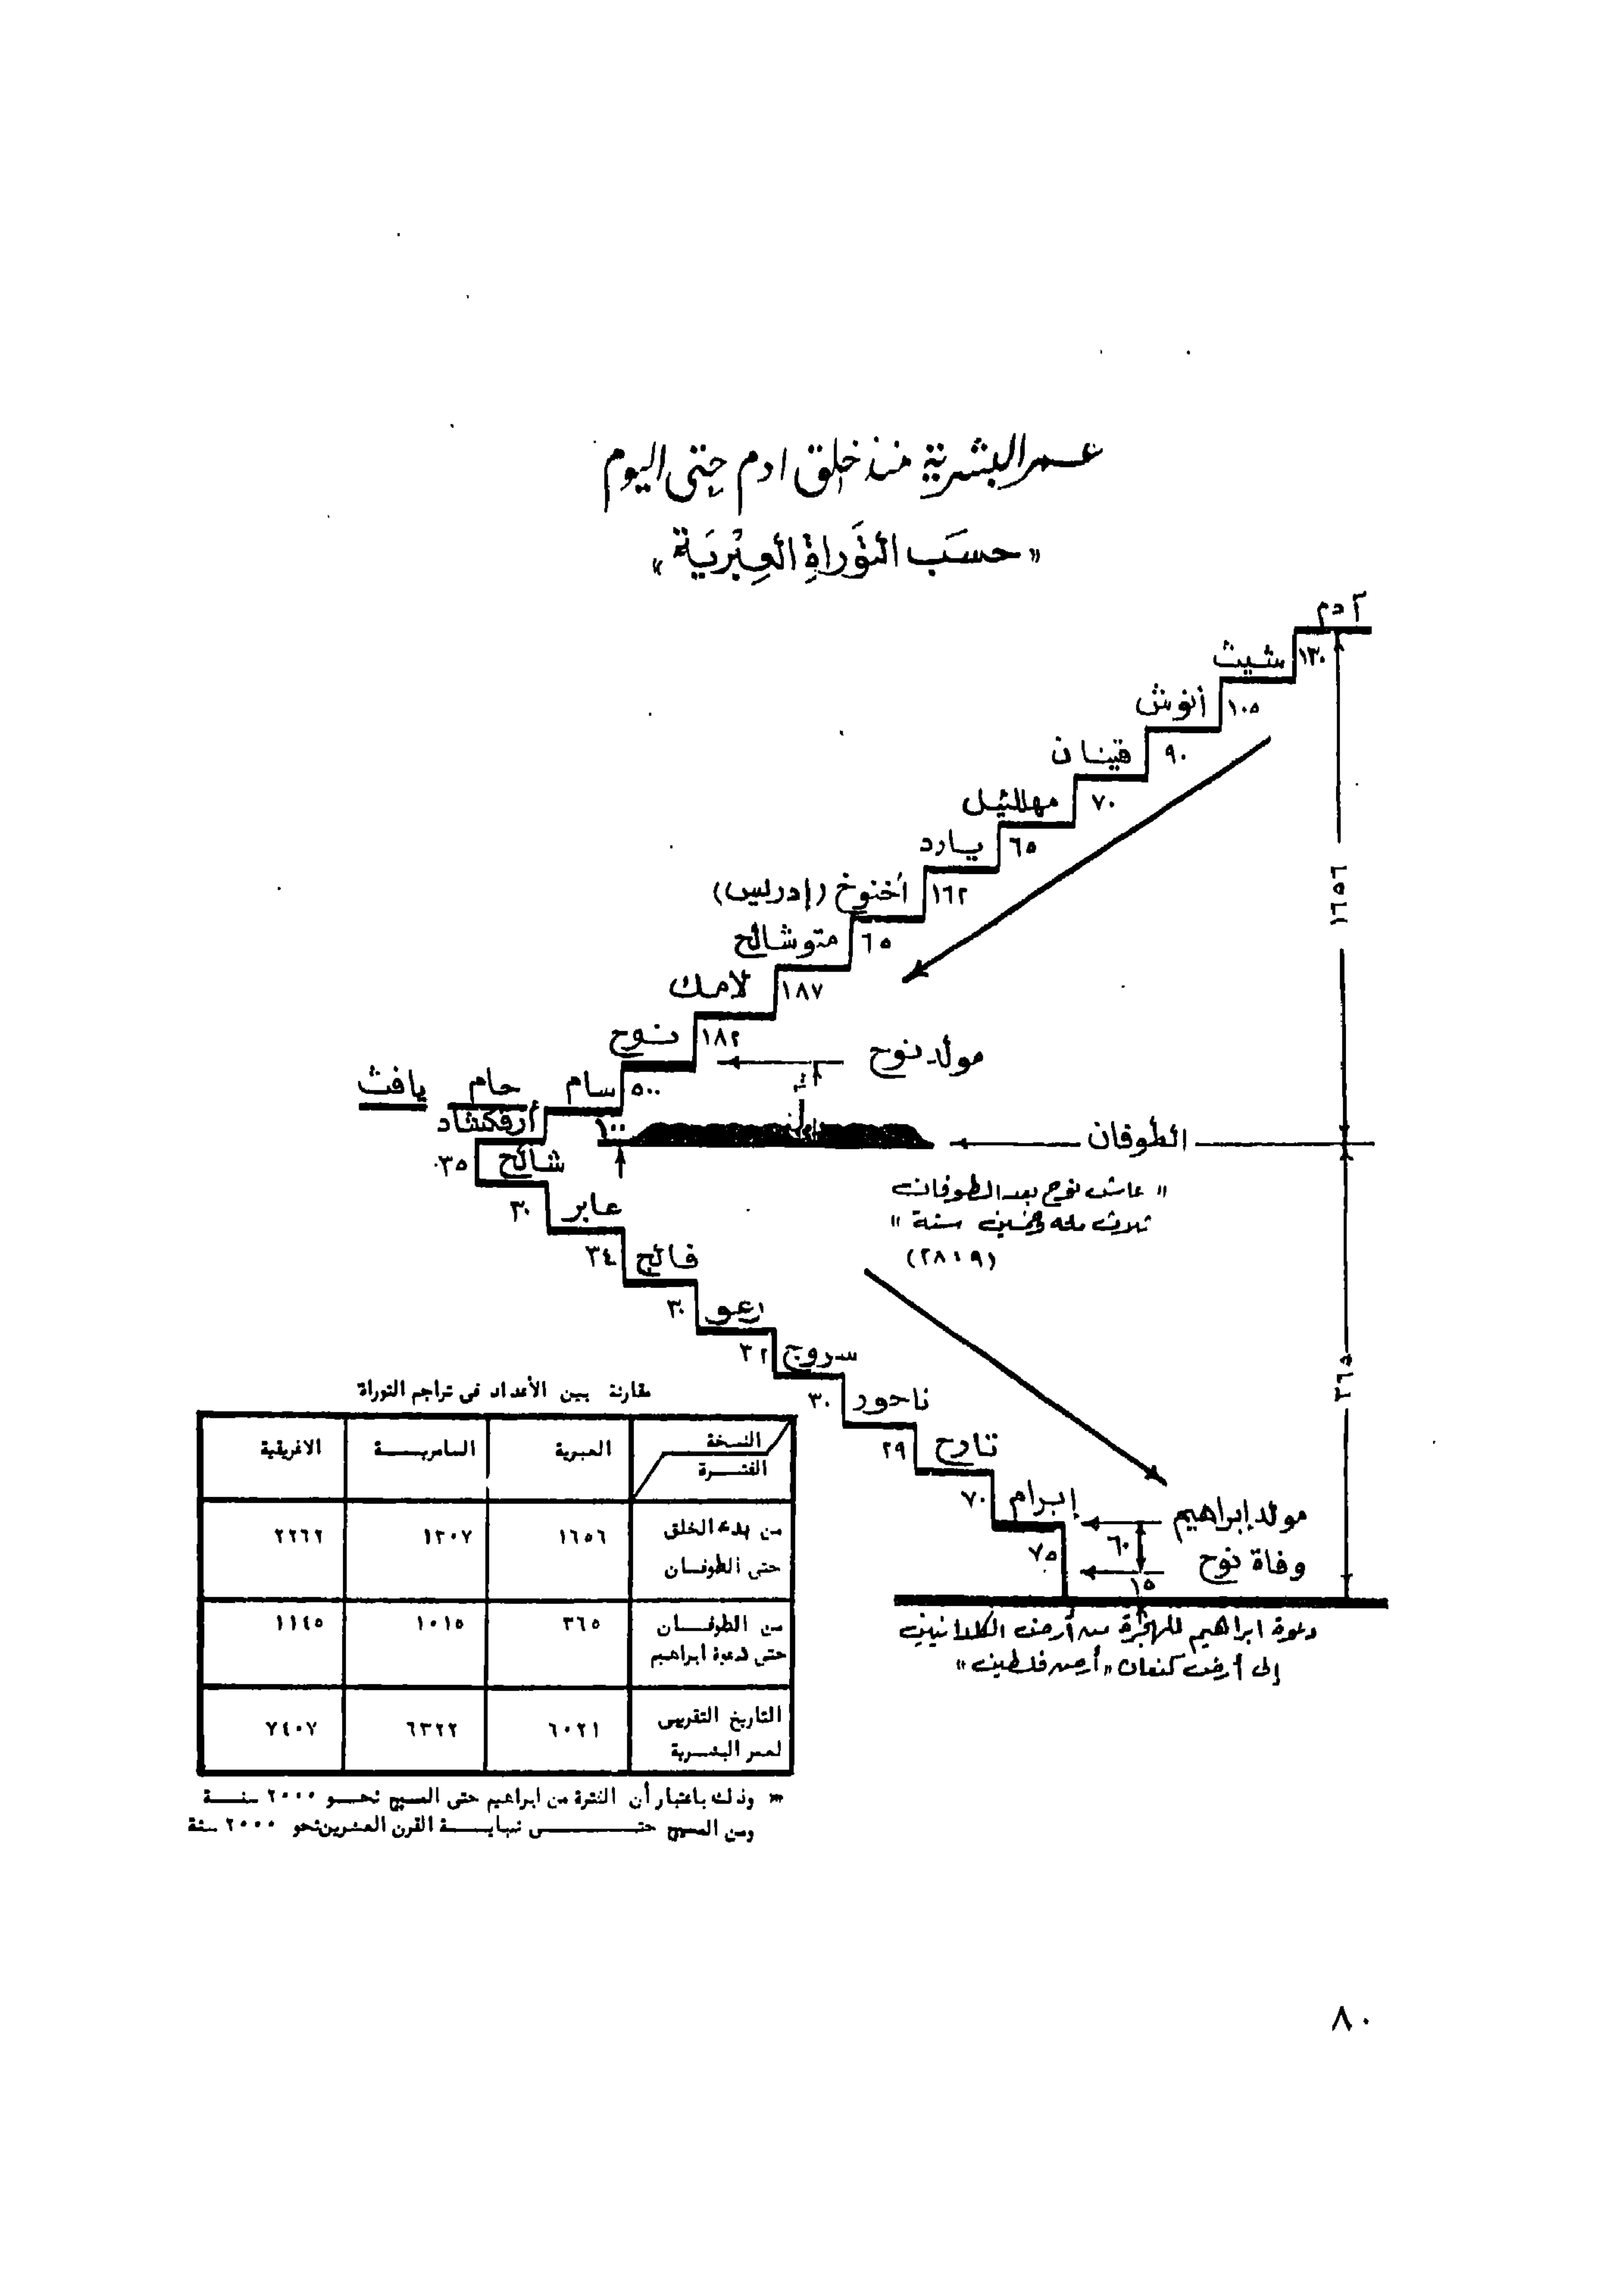 عمر البشرية منذ خلق ادم حتى اليوم
« حسَب التوَراةِ العِبْريَة »
آدم
١٣٠
شيث
١٠٥
أنوش
٩٠
قينان
٧٠
مهللئيل
٦٥
يارد
١٦٢
أخنوخ (إدريس)
٦٥
متوشالح
١٨٧
لامك
١٨٢
نوح
مولد نوح
٥٠٠
سام
حام
يافث
١٠٠
أرفكشاد
الطوفان
١٦٥٦
٣٥
شالح
" عاش نوح بعد الطوفان
ثلاث مئه وخمسين سنة "
(٢٨:٩)
٣٠
عابر
٣٤
فالج
٣٠
رعو
٣٢
سروج
٣٠
ناحور
٢٩
تارح
٧٠
إبرام
٧٥
٣٦٥
مولد إبراهيم
٦٠
وفاة نوح
١٥
دعوة ابراهيم للهجرة من أرض الكلدانيين
إلى أرض كنعان "أرض فلسطين"
مقارنة بين الأعداد فى تراجم التوراة
النسخة
الفترة
العبرية
السامرية
الاغريقية
من بدء الخلق
حتى الطوفان
١٦٥٦
١٣٠٧
٢٢٦٢
من الطوفان
حتى دعوة ابراهيم
٣٦٥
١٠١٥
١١٤٥
التاريخ التقريبى
لعمر البشرية
٦٠٢١
٦٣٢٢
٧٤٠٧
* وذلك باعتبار أن الفترة من ابراهيم حتى المسيح نحو ٢٠٠٠ سنة
ومن المسيح حتى نهاية القرن العشرين نحو ٢٠٠٠ سنة
٨٠